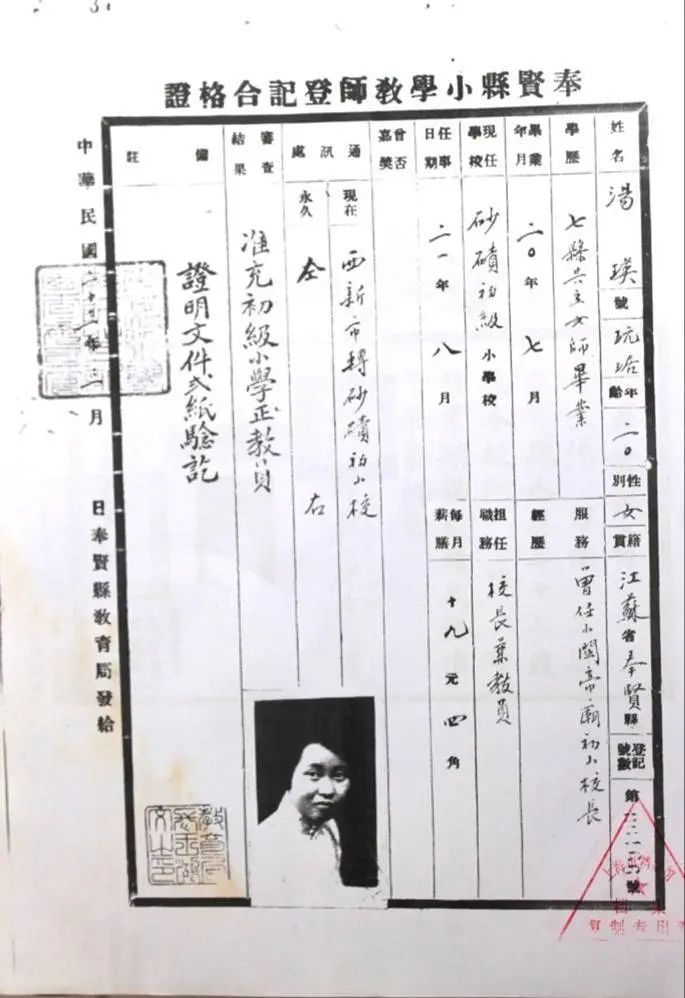 奉賢縣小學教師登記合格證
姓名 湯瑛 號 玩 年齡 二〇 性別 女 籍貫 江蘇省奉賢縣 登記號數 第 號
學歷 七縣共立女師畢業
服務經歷 曾任小關帝廟初小校長
畢業年月 二〇年七月
現任學校 砂磧初級小學校
擔任職務 校長兼教員
任事日期 二一年八月
每月薪膳 十九元四角
曾否嘉獎
通訊處
現在 西新市轉砂磧初小校
永久 仝右
審查結果 准充初級小學正教員
備註 證明文件弍紙驗訖
中華民國二十二年 月 日奉賢縣教育局發給